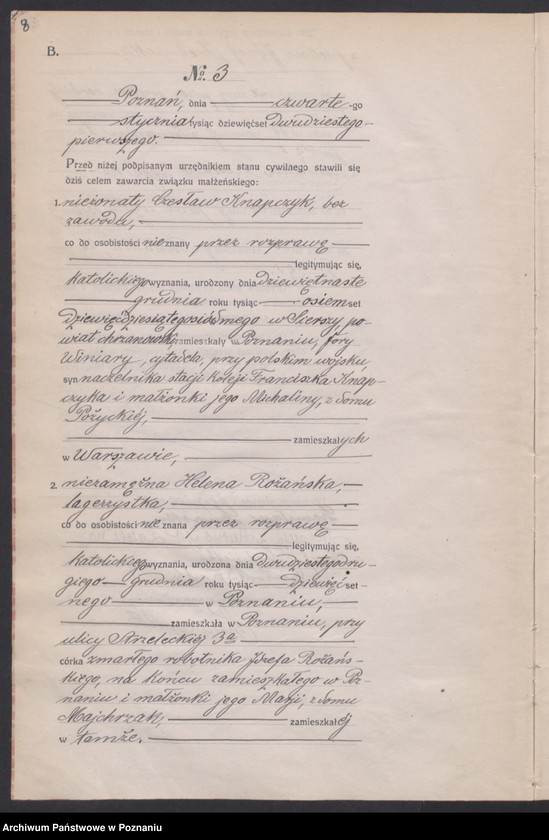 8
B.
№ 3
Poznań, dnia czwarte-go
stycznia tysiąc dziewięćset dwudziestego
pierwszego.
Przed niżej podpisanym urzędnikiem stanu cywilnego stawili się
dziś celem zawarcia związku małżeńskiego:
1. nieżonaty Czesław Knapczyk, bez
zawodu,
co do osobistości nieznany przez rozprawę
legitymując się,
katolickiego wyznania, urodzony dnia dziewiętnaste
grudnia roku tysiąc osiemset
dziewięćdziesiątegosiódmego w Sierszy, po-
wiat chrzanowski, zamieszkały w Poznaniu, fory
Winiary, cytadela, przy polskim wojsku,
syn naczelnika stacji kolei Franciszka Knap-
czyka i małżonki jego Michaliny, z domu
Pożyckiej,
zamieszkałych
w Warszawie,
2. niezamężna Helena Rożańska,
lagerzystka,
co do osobistości nieznana przez rozprawę
legitymując się,
katolickiego wyznania, urodzona dnia dwudziestegodru-
giego grudnia roku tysiąc dziewięćset-
nego w Poznaniu,
zamieszkała w Poznaniu, przy
ulicy Strzeleckiej 3a
córka zmarłego robotnika Józefa Rożańs-
kiego, na końcu zamieszkałego w Po-
znaniu i małżonki jego Marji, z domu
Majchrzak, zamieszkałej
w tamże.
Archiwum Państwowe w Poznaniu